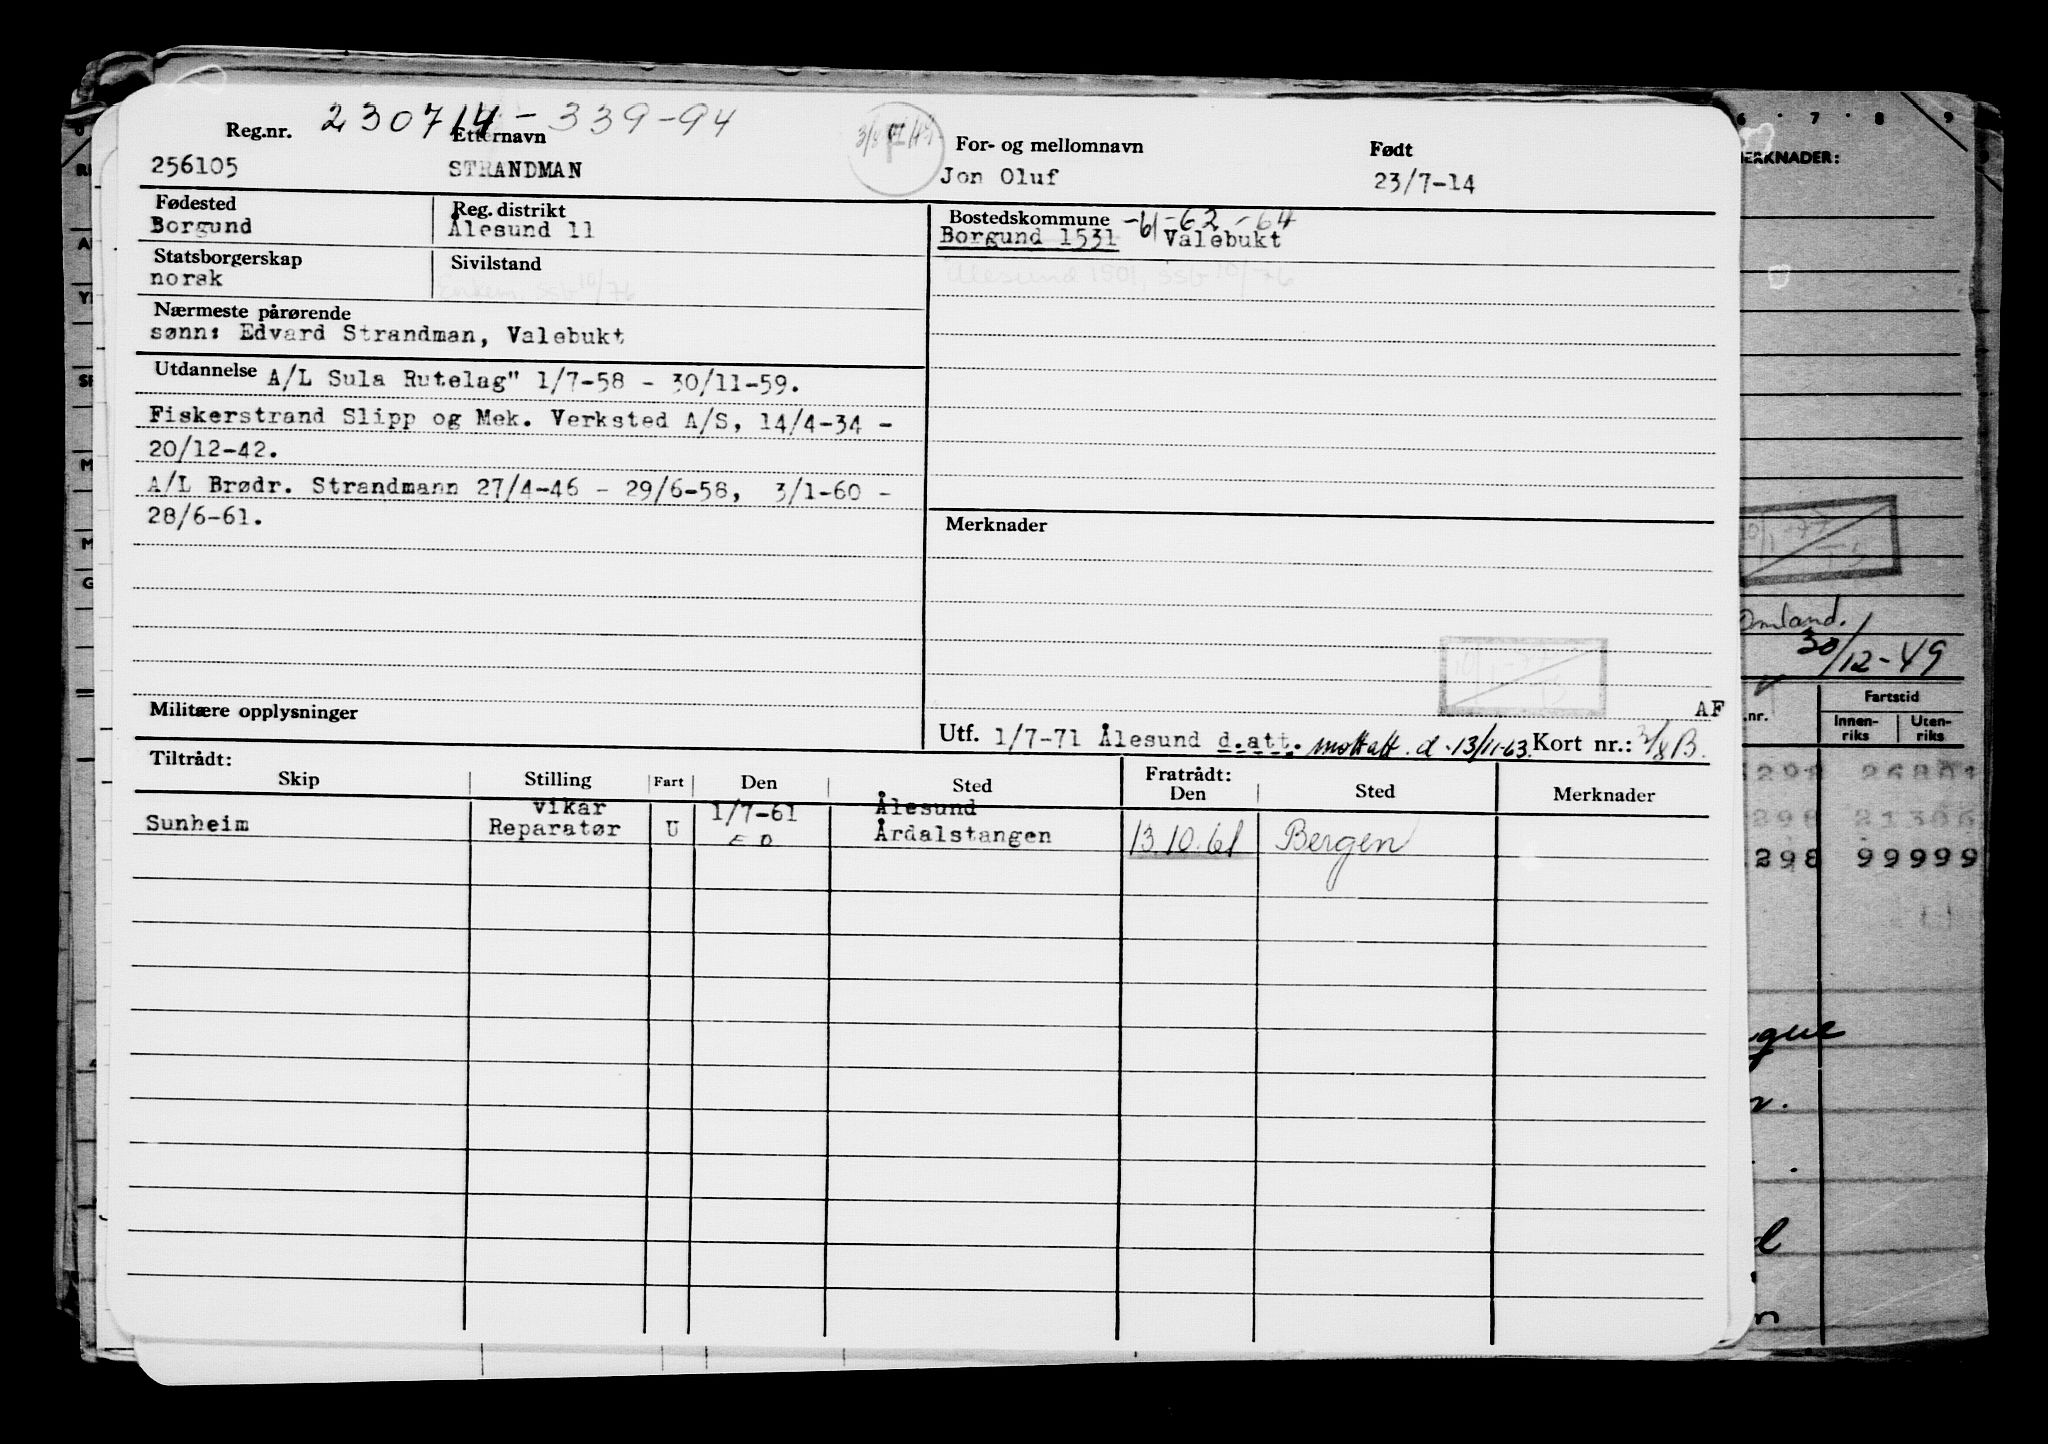 Reg.nr. 230714-339-94
Etternavn
For- og mellomnavn
Født
256105
STRANDMAN
Jon Oluf
23/7-14
Fødested
Borgund
Reg. distrikt
Ålesund 11
Bostedskommune -61-62-64
Borgund 1531 Valebukt
Ålesund 1501, SSB 10/-76
Statsborgerskap
norsk
Sivilstand
SSB 10/76
Nærmeste pårørende
sønn: Edvard Strandman, Valebukt
Utdannelse A/L Sula Rutelag" 1/7-58 - 30/11-59.
Fiskerstrand Slipp og Mek. Verksted A/S, 14/4-34 -
20/12-42.
A/L Brødr. Strandmann 27/4-46 - 29/6-58, 3/1-60 -
28/6-61.
Merknader
10/1-77
AF
Militære opplysninger
Utf. 1/7-71 Ålesund d.att. mottatt. d. 13/11-63. Kort nr.: 3/8 B.
Tiltrådt:
Skip
Stilling
Fart
Den
Sted
Fratrådt:
Den
Sted
Merknader
Sunheim
vikar
Reparatør
U
1/7-61
Ålesund
Årdalstangen
13.10.61
Bergen
6 7 8 9
MERKNADER:
10/1-77
TS
Omland.
30/12-49
.nr.
Fartstid
Innen-
riks
Uten-
riks
298 99999